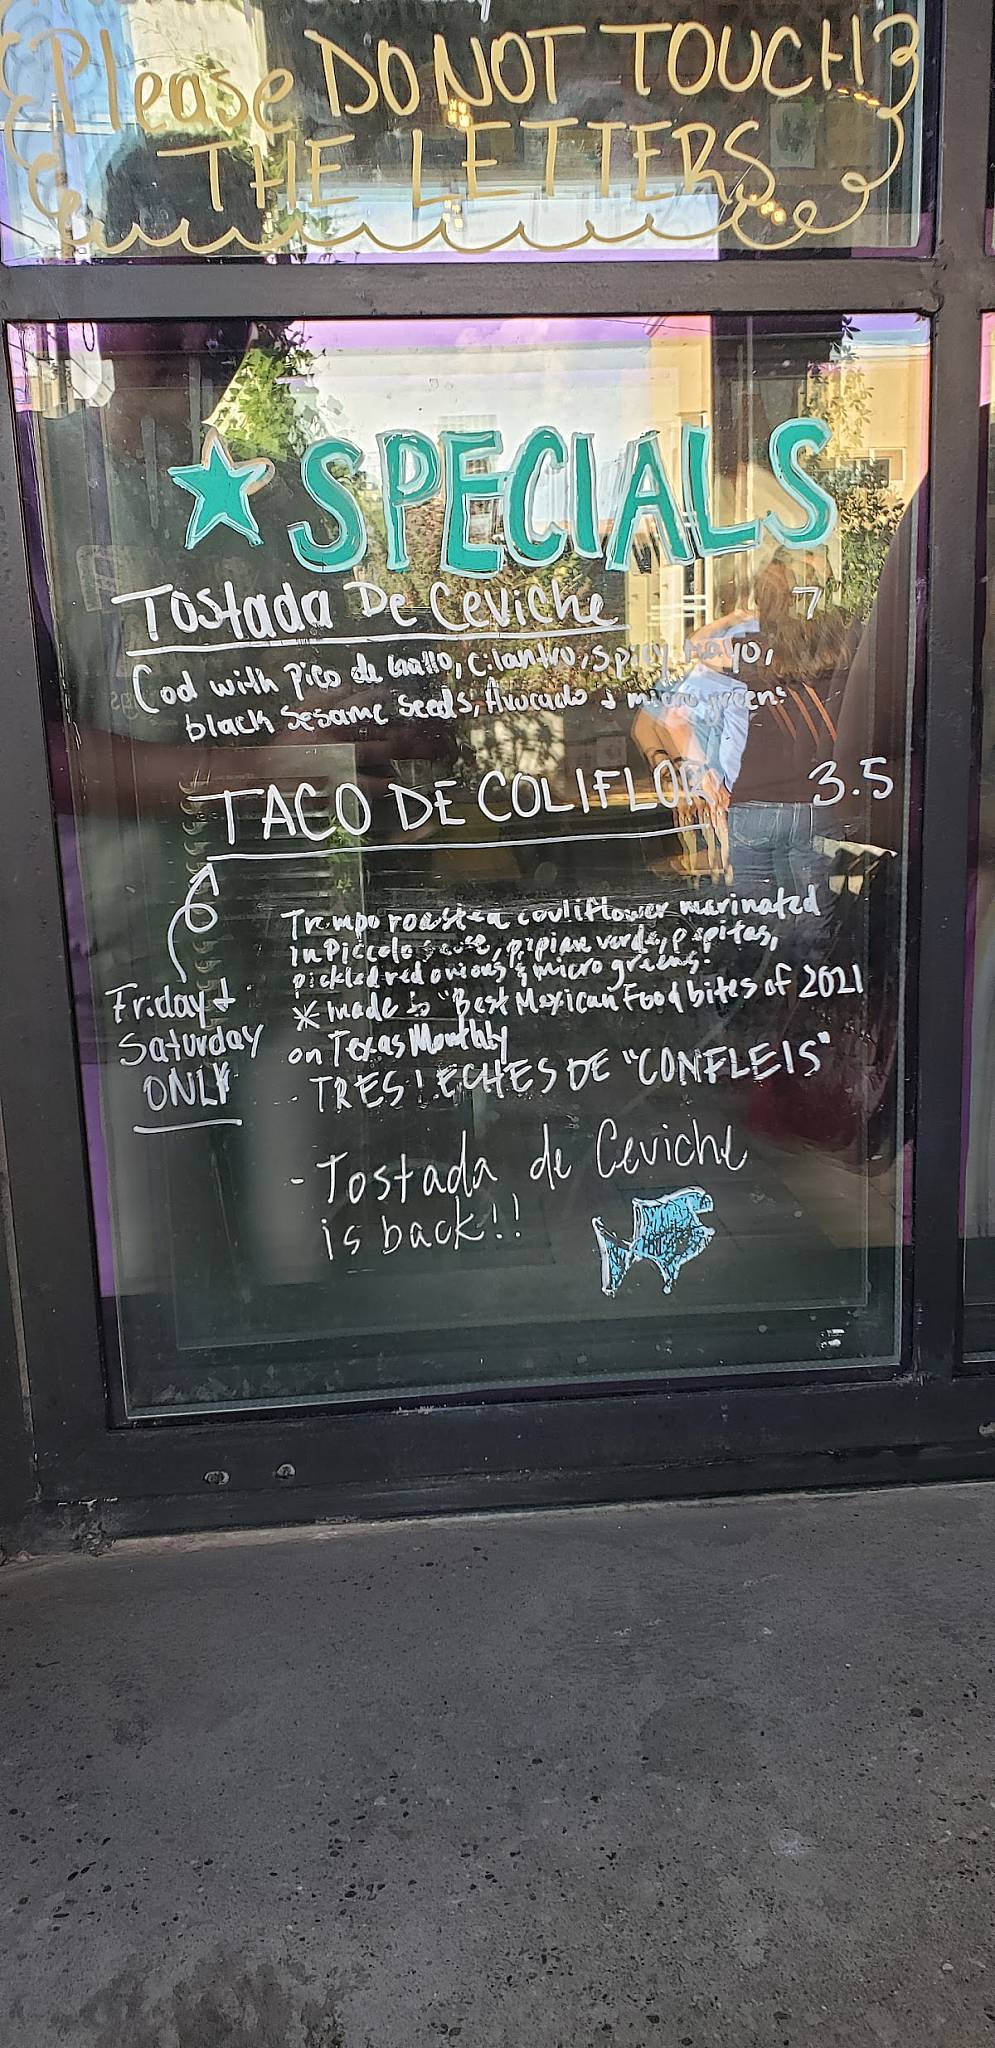 Please DO NOT TOUCH
THE LETTERS
SPECIALS
Tostada De Ceviche 7
Cod with Pico de Gallo, Cilantro, Spicy Mayo,
black Sesame Seeds, Avocado & micro greens
TACO DE COLIFLOR 3.5
Friday &
Saturday
ONLY
Trompo roasted couliflower marinated
in Piccolo sauce, pipian verde, pepitas,
pickled red onions & micro greens.
* made to "Best Mexican Food bites of 2021
on Texas Monthly
- TRES LECHES DE "CONFLEIS"
- Tostada de Ceviche
is back!!